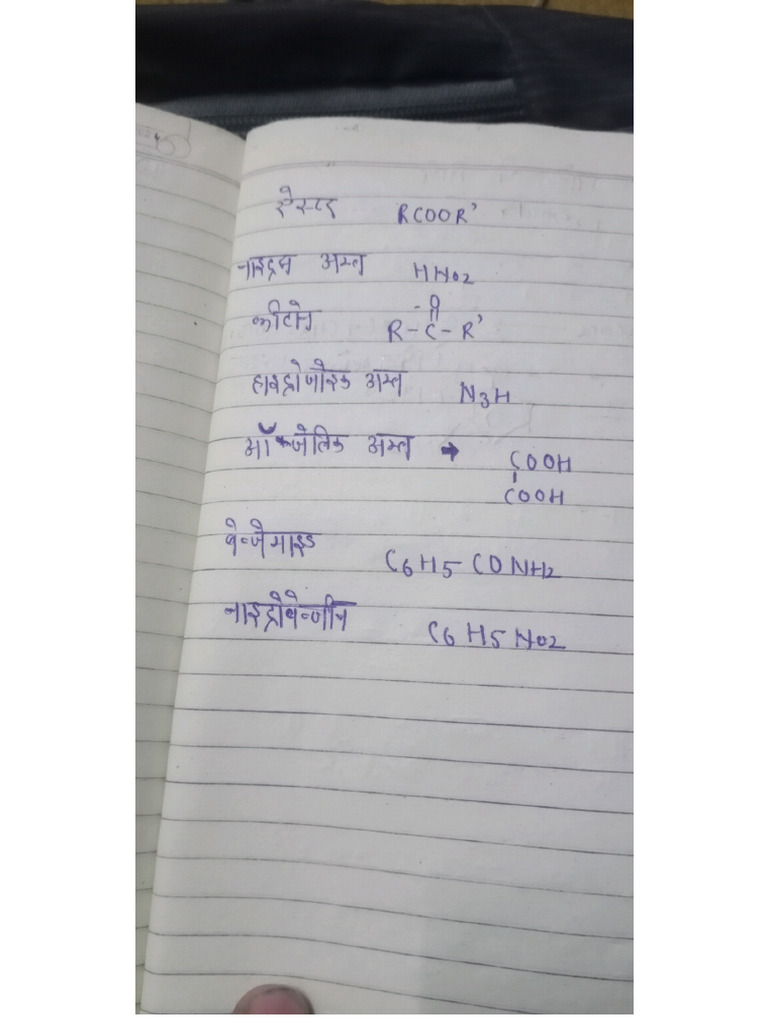 ऐस्टर RCOOR'
नाइट्रस अम्ल HNO2
कीटोन R-C-R'
O
हाइड्रोजोइक अम्ल N3H
ऑक्जेलिक अम्ल → COOH
COOH
बेन्जेमाइड C6H5-CONH2
नाइट्रोबेन्जीन C6H5NO2